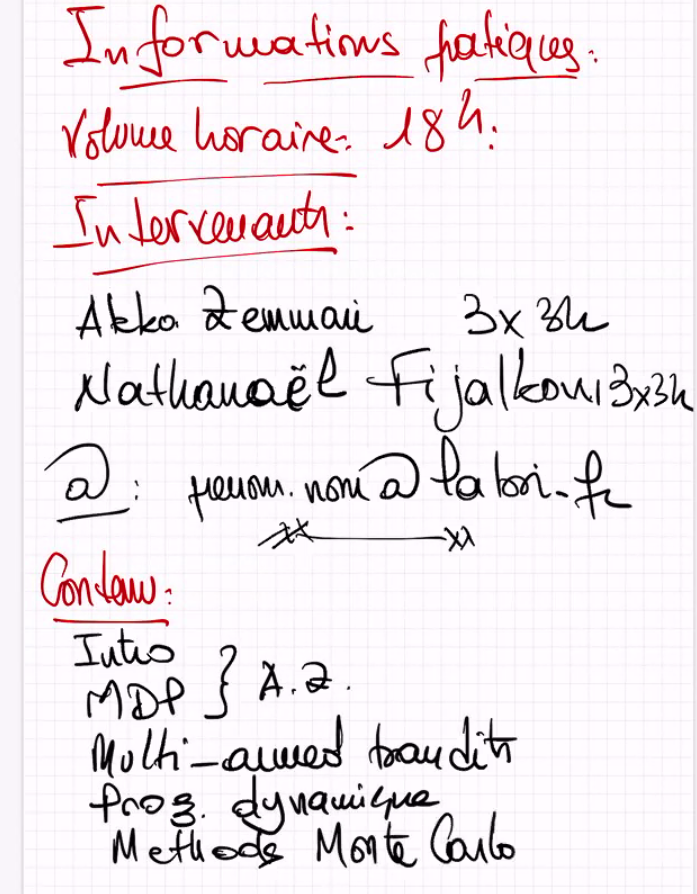 Informations pratiques:
Volume horaire: 18h:
Intervenants:
Akka Zemmari 3x3h
Nathanaël Fijalkow 3x3h
@: prenom.nom@labri.fr
Contenu:
Intro
MDP } A.Z.
Multi-armed bandits
Prog. dynamique
Methods Monte Carlo